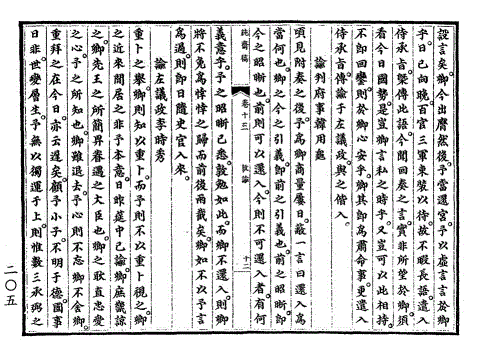 設言矣卿今出膺然後予當還宮予以虛言言於卿
乎日已向晩百官三軍束裝以待故不暇長語遣入
侍承旨槩傳此語今聞回奏之言實非所望於卿須
看今日國勢是豈卿言私之時乎又豈可以此相持
不卽回鑾則於卿心安乎卿其卽爲肅命事更遣入
侍承旨傳諭于左議政與之偕入
諭判府事韓用龜
頃見附奏之後予爲卿商量屢日蔽一言曰還入爲
當何也卿之今之引義卽前之引義也前之昭晣卽
今之昭晣也前則可以還入今則不可還入者有何
純齋稿 卷十三 敎諭 十二
義意乎予之昭晣已悉敦勉如此而卿不還入則
將不免爲悻悻之歸而前後兩截矣卿如不以予言
爲過則卽日隨史官入來
諭左議政李時秀
重卜之擧卿則知以重卜而予則不以重卜視之卿
之近來閒居之非予本意日昨筵中已諭卿庶幾諒
之卿先王之所簡畀眷遇之大臣也卿之耿直忠愛
之心予之所知也卿雖退去予心則不忘卿不舍卿
重拜之在今日亦云遲矣顧予小子不明于德國事
日非世變層生予無以獨運于上則惟數三丞弼之
二〇五